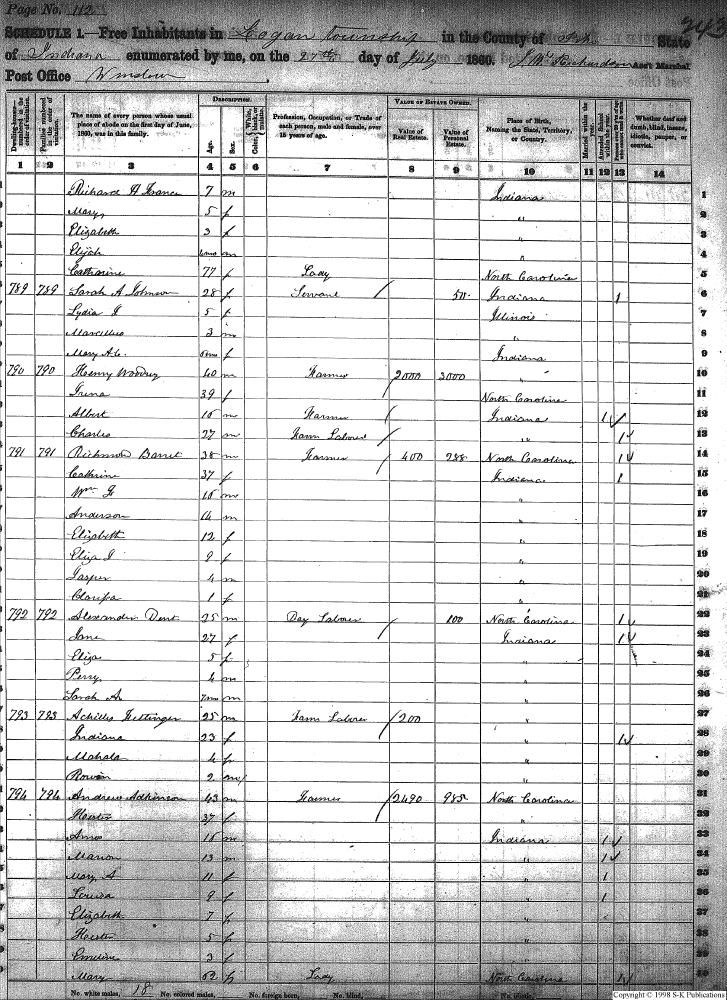 Page No. 112
243
SCHEDULE 1.—Free Inhabitants in Logan township in the County of Pike State
of Indiana enumerated by me, on the 27th day of July 1860. Richardson Ass't Marshal
Post Office Winslow
The name of every person whose usual place of abode on the first day of June, 1860, was in this family.
DESCRIPTION.
Age.
Sex.
Profession, Occupation, or Trade of each person, male and female, over 15 years of age.
VALUE OF ESTATE OWNED.
Value of Real Estate.
Value of Personal Estate.
Place of Birth, Naming the State, Territory, or Country.
Whether deaf and dumb, blind, insane, idiotic, pauper, or convict.
1 2 3 4 5 6 7 8 9 10 11 12 13 14
Richard H France 7 m Indiana 1
Mary 5 f " 2
Elizabeth 3 f " 3
Elijah m " 4
Catharine 77 f Lady North Carolina 5
789 789 Sarah A Johnson 28 f Servant 50 Indiana 1 6
Lydia J 5 f Illinois 7
Marcellus 3 m " 8
Mary f Indiana 9
790 790 Henry 40 m Farmer 2000 3000 " 10
Irena 39 f North Carolina 11
Albert 16 m Farmer Indiana 1 12
Charles 27 m Farm Laborer " 1 13
791 791 Richmond Barret 38 m Farmer 400 288 North Carolina 1 14
Cathrine 37 f Indiana 1 15
Wm 16 m " 16
Anderson 14 m " 17
Elizabeth 12 f " 18
Eliza J 9 f " 19
Jasper 4 m " 20
Clarissa 1 f " 21
792 792 Alexander Dent 25 m Day Laborer 100 North Carolina 1 22
Jane 27 f Indiana 1 23
Eliza 5 f " 24
Perry 4 m " 25
Sarah A. m " 26
793 793 Achilles 25 m Farm Laborer 200 " 27
Indiana 23 f " 1 28
Mahala 4 f " 29
Rowen 2 m " 30
794 794 Andrew Adkinson 43 m Farmer 2490 985 North Carolina 31
Hester 37 f " 32
Amos 15 m Indiana 1 33
Marion 13 m " 1 34
Mary A 11 f " 1 35
Louisa 9 f " 1 36
Elizabeth 7 f " 37
Hester 5 f " 38
Emeline 3 f " 39
Mary 62 f Lady North Carolina 1 40
No. white males, 18 No. colored males, No. foreign born, No. blind,
Copyright © 1998 S-K Publications